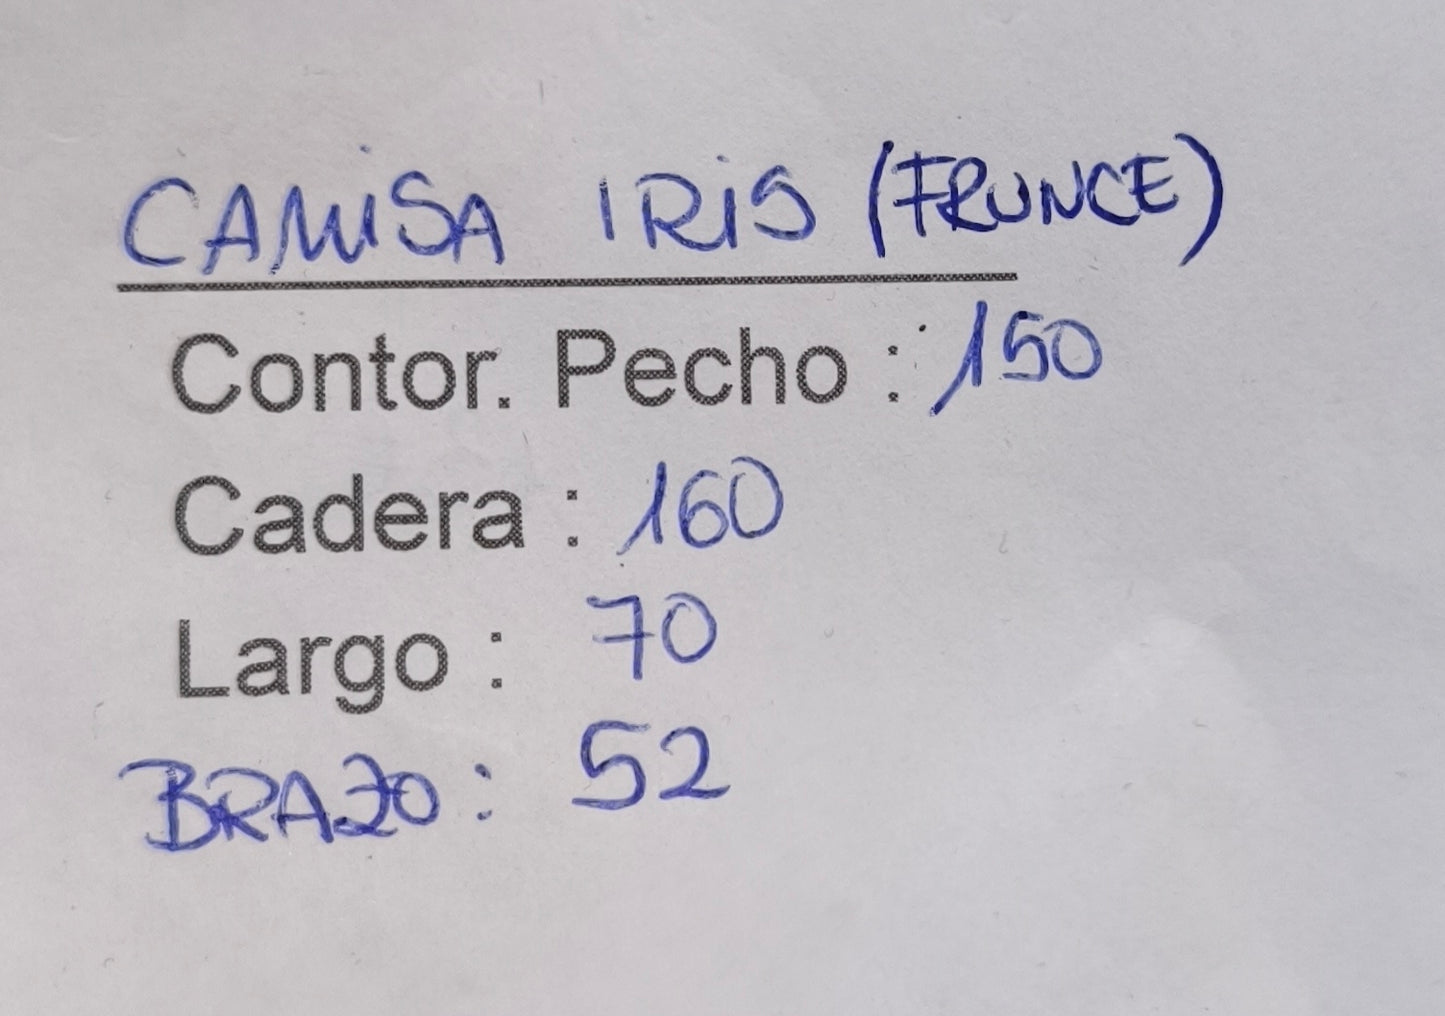 CAMISA IRIS (FRUNCE)
Contor. Pecho : 150
Cadera : 160
Largo : 70
BRAZO : 52